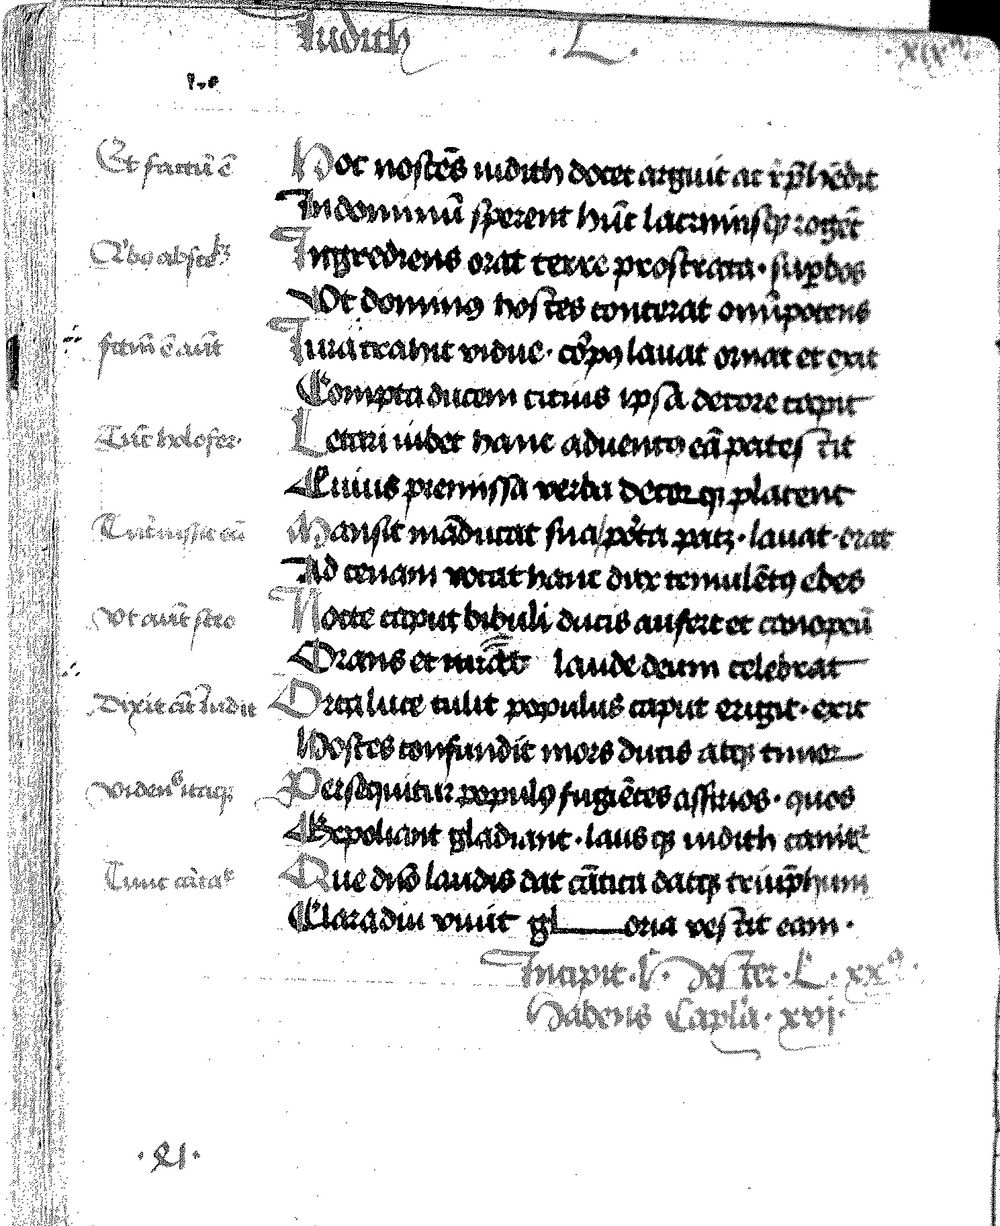 Iudith .L. xixꝰ
Et factū ē Hoc nostēs iudith docet arguit ac rep̄hēdit
In dominū sperent hūc lacrimisqꝫ rogēt
Ingrediens orat terre prostrata· supbos
Vt dominꝰ hostes conterat omīpotens
factū ē aūt Iura trahit vidue· corpꝰ lauat ornat et exit
Compta ducem citius ipsa decore capit
Tūc holofer· Letari iubet hanc aduentꝰ eā pates
Cuius premissa verba decorqꝫ placent
Mansit māducat sua pota lauat· orat
Ad cenam vocat hanc dux temulētꝰ ebes
Vt aūt sero Nocte caput bibuli ducis aufert et canopeū
Orans et laude deum celebrat
Dixit āt iudit Orta luce tulit populus caput erigit· exit
Hostes confundit mors ducis atqꝫ timor
Videns itaqꝫ Persequitur populꝰ fugiētes assirios· quos
gladiant· lausqꝫ iudith canitr
Tunc cāta Que dn̄o laudis dat cātica datqꝫ triūphum
Clara diu viuit gl oria vestit eam·
Incipit· Hester· L· xxꝰ·
Habens Capl̄a· xvj·